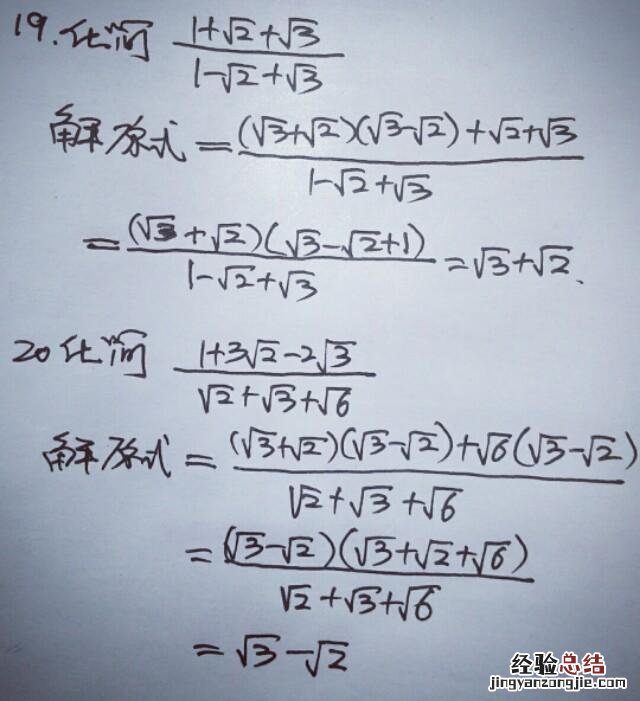 19.化简 (1+√2+√3)/(1-√2+√3)
解 原式 = ((√3+√2)(√3-√2)+√2+√3)/(1-√2+√3)
= ((√3+√2)(√3-√2+1))/(1-√2+√3) = √3+√2.
20 化简 (1+3√2-2√3)/(√2+√3+√6)
解 原式 = ((√3+√2)(√3-√2)+√6(√3-√2))/(√2+√3+√6)
= ((√3-√2)(√3+√2+√6))/(√2+√3+√6)
= √3-√2
经验总结
jingyanzongjie.com